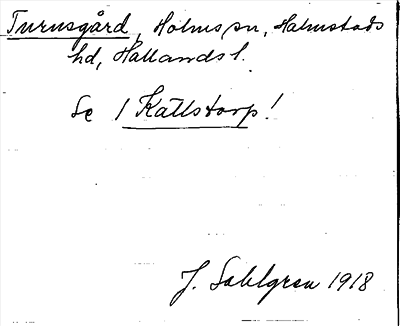 Turusgård, Holms sn, Halmstads
hd, Hallands l.
Se 1 Källstorp!
J. Sahlgren 1918